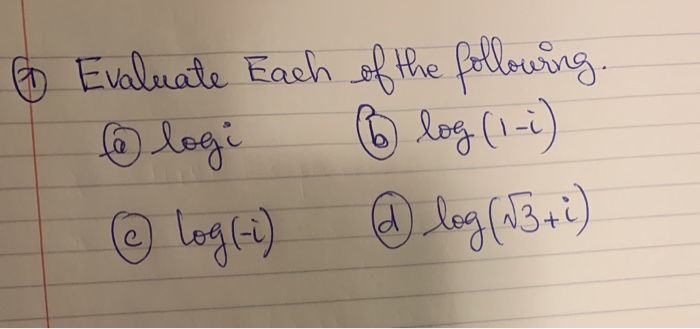 ⑦ Evaluate Each of the following.
ⓐ log i ⓑ log (1-i)
ⓒ log(-i) ⓓ log(√3+i)